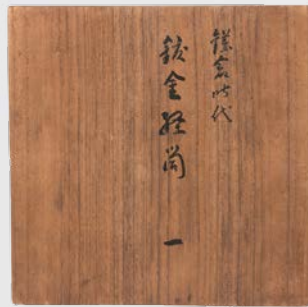 鎌倉時代
鍍金経筒 一